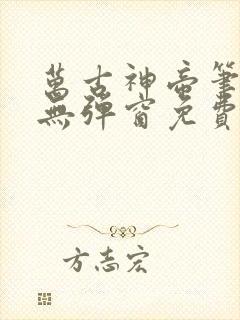 萬古神帝筆
無彈窗免費
方志宏